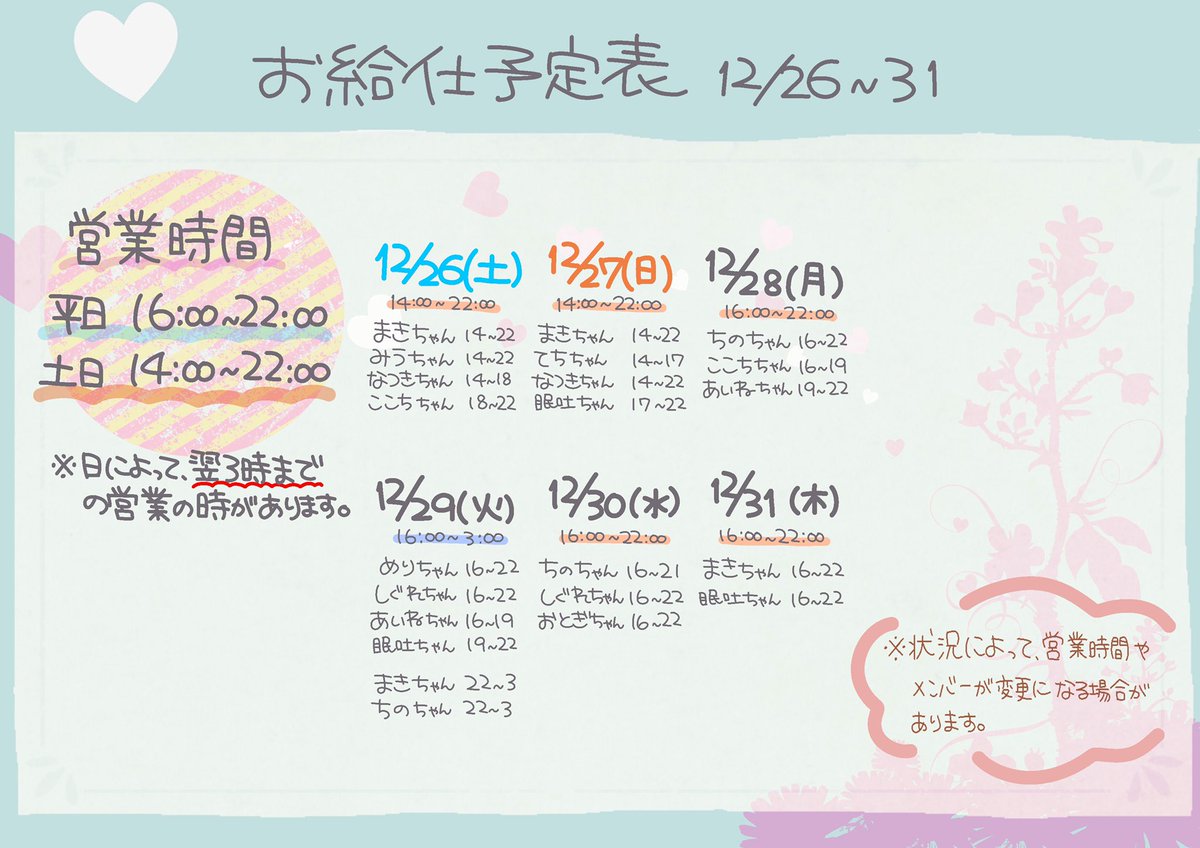 お給仕予定表 12/26~31
営業時間
平日 16:00~22:00
土日 14:00~22:00
※日によって、翌3時まで
の営業の時があります。
12/26(土)
14:00~22:00
まきちゃん 14~22
みうちゃん 14~22
なつきちゃん 14~18
ここちちゃん 18~22
12/27(日)
14:00~22:00
まきちゃん 14~22
てちちゃん 14~17
なつきちゃん 14~22
眠吐ちゃん 17~22
12/28(月)
16:00~22:00
ちのちゃん 16~22
ここちちゃん 16~19
あいねちゃん 19~22
12/29(火)
16:00~3:00
めりちゃん 16~22
しぐれちゃん 16~22
あいねちゃん 16~19
眠吐ちゃん 19~22
まきちゃん 22~3
ちのちゃん 22~3
12/30(水)
16:00~22:00
ちのちゃん 16~21
しぐれちゃん 16~22
おとぎちゃん 16~22
12/31(木)
16:00~22:00
まきちゃん 16~22
眠吐ちゃん 16~22
※状況によって、営業時間や
メンバーが変更になる場合が
あります。